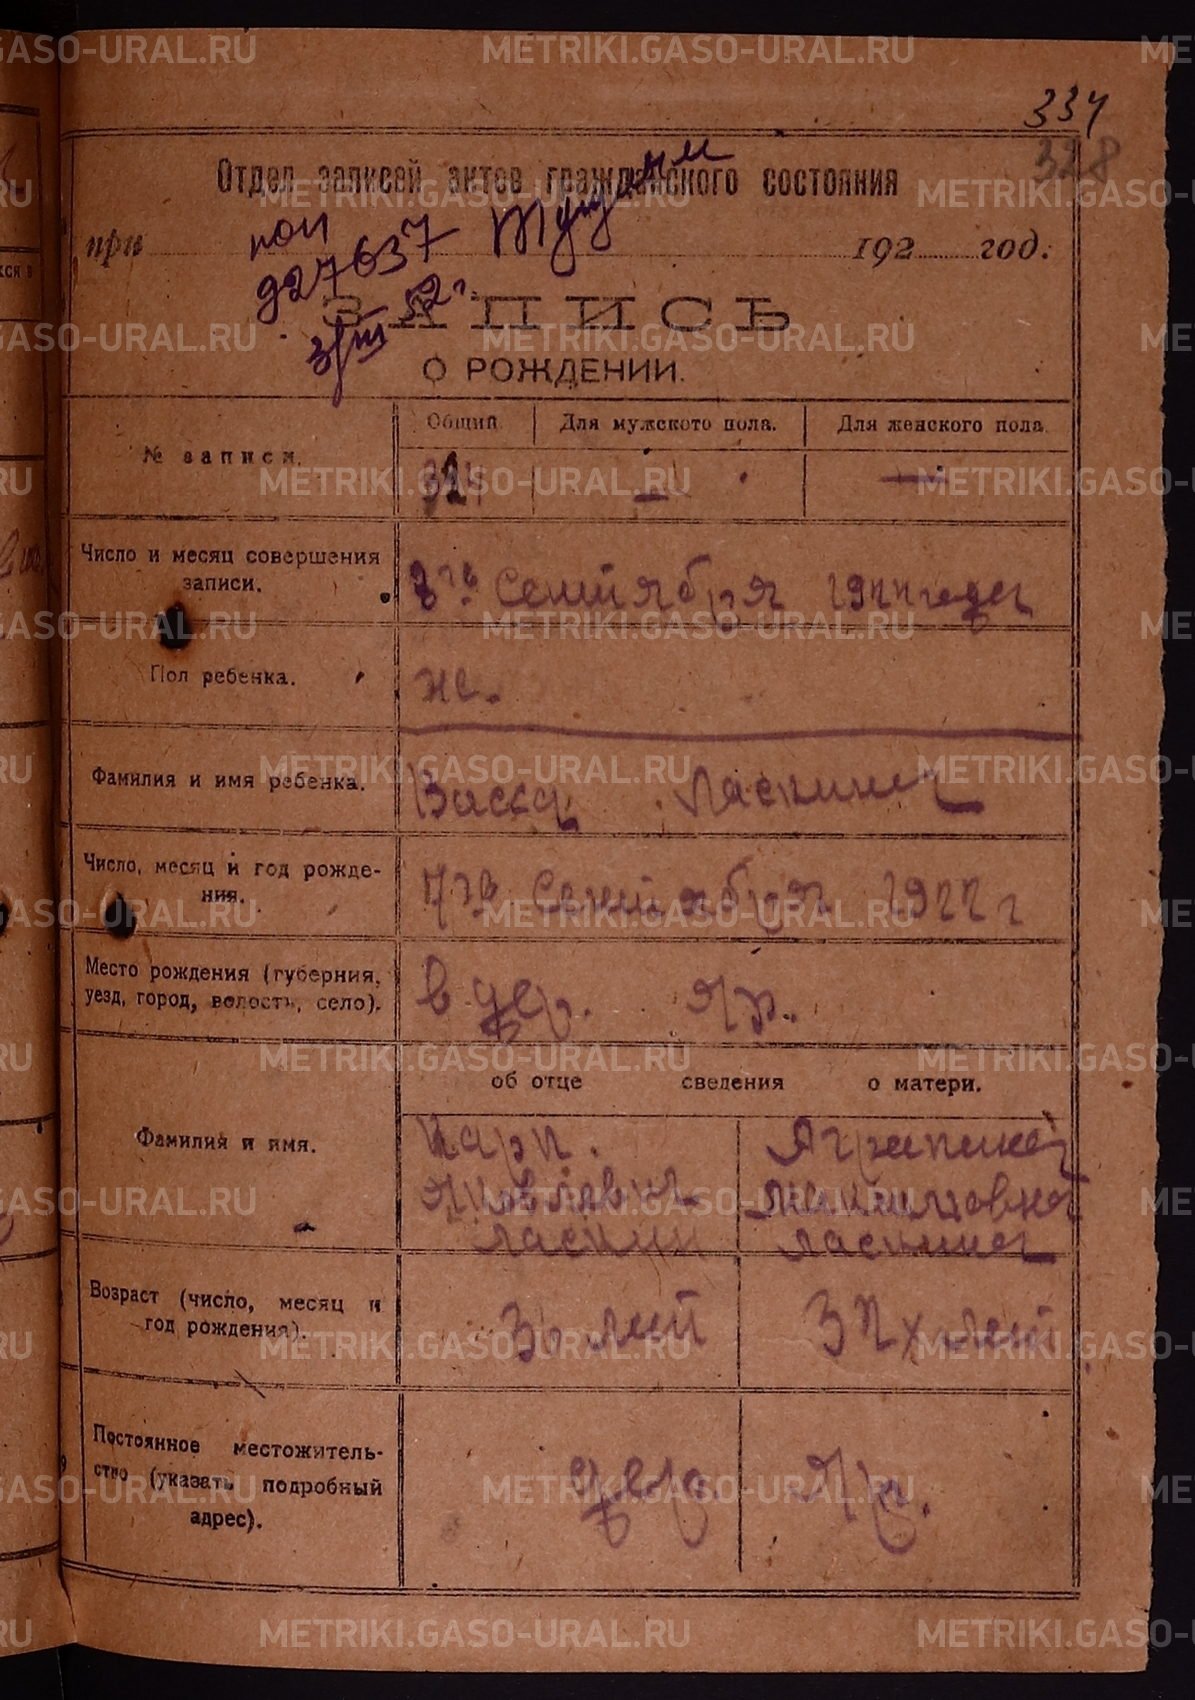 334
328
Отдел записей актов гражданского состояния
при 192 год.
927637
3/III 52 г.
ЗАПИСЬ
О РОЖДЕНИИ.
№ записи. Общий. Для мужского пола. Для женского пола.
324 — —
Число и месяц совершения записи.
Сентября 1922 года
Пол ребенка.
ж.
Фамилия и имя ребенка.
Васса Ласкина
Число, месяц и год рождения.
7го Сентября 1922 г
Место рождения (губерния, уезд, город, волость, село).
в дер. Яр.
об отце сведения о матери.
Фамилия и имя.
Карп.
Яковлевич
Ласкин
Агрипина
Ласкина
Возраст (число, месяц и год рождения).
лет
лет
Постоянное местожительство (указать подробный адрес).
дер Яр.
METRIKI.GASO-URAL.RU